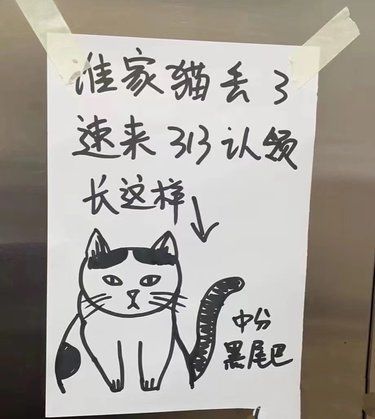 谁家猫丢了
速来313认领
长这样
中分
黑尾巴